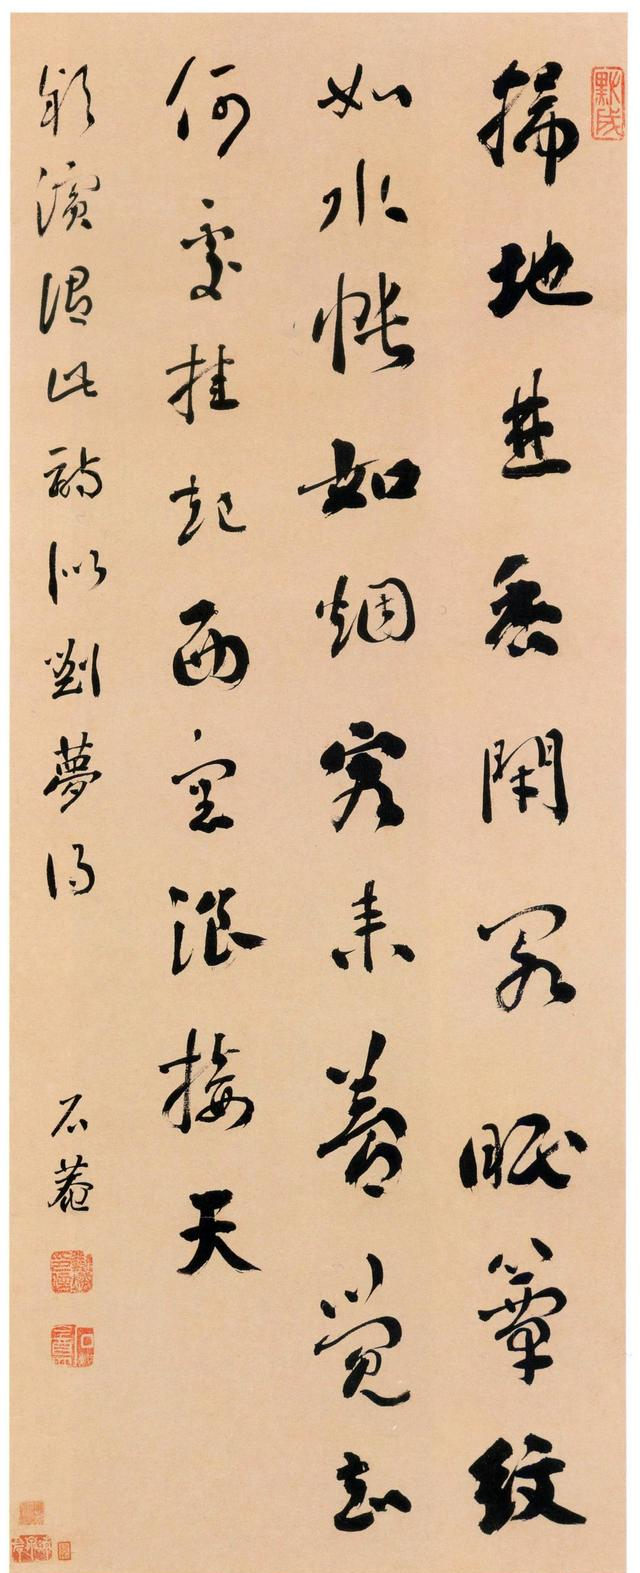 掃地焚香閉閣眠簟紋
如水帳如烟客來夢覺知
何處挂起西窓浪接天
潁濱謂此詩似劉夢得
石菴